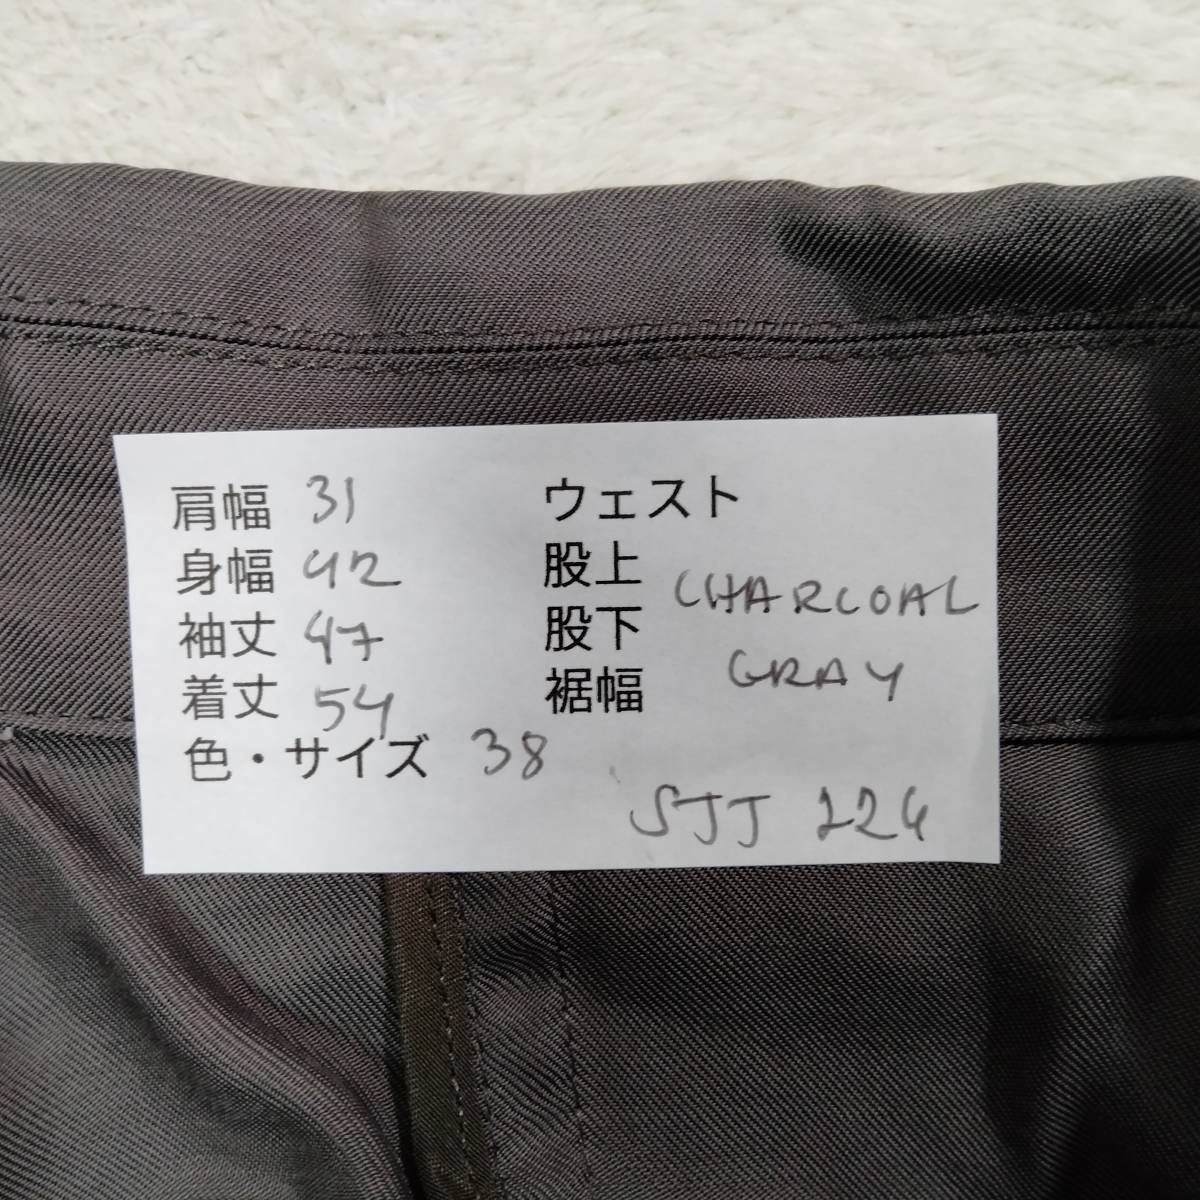 肩幅 31
身幅 42
袖丈 47
着丈 54
色・サイズ 38
ウェスト
股上
股下
裾幅
CHARCOAL
GRAY
SJJ 224